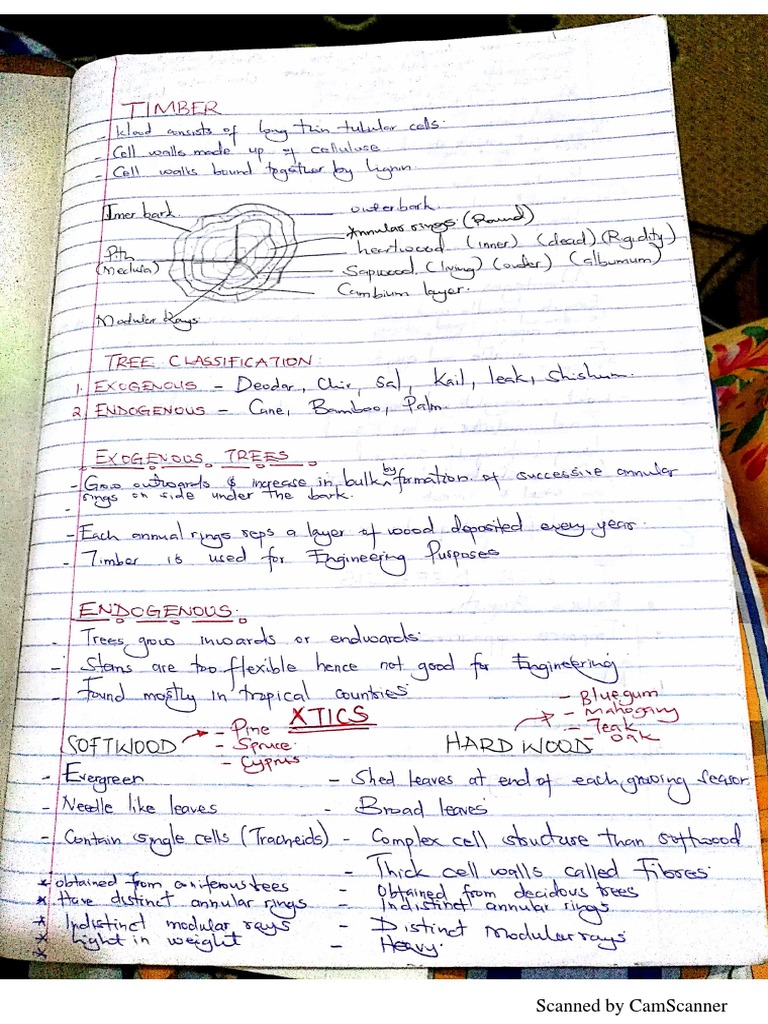 TIMBER
- Wood consists of long thin tubular cells.
- Cell walls made up of cellulose
- Cell walls bound together by lignin
Inner bark
outerbark
Annular rings (Round)
heartwood (inner) (dead) (Rigidity)
Pith
(Medulla)
Sapwood (living) (outer) (alburnum)
Cambium layer.
Modular Rays
TREE CLASSIFICATION
1. EXOGENOUS - Deodar, Chir, Sal, Kail, teak, Shishum.
2 ENDOGENOUS - Cane, Bamboo, Palm.
EXOGENOUS TREES
- Grow outwards & increase in bulk by formation of successive annular
rings on side under the bark.
-
- Each annual rings reps a layer of wood deposited every year.
- Timber is used for Engineering Purposes
ENDOGENOUS.
- Trees grow inwards or endwards.
- Stems are too flexible hence not good for Engineering
- Found mostly in tropical countries
XTICS
SOFTWOOD
- Pine
- Spruce
- Cyprus
HARDWOOD
- Bluegum
- Mahogany
- Teak
- Oak
- Evergreen
- Shed leaves at end of each growing season
- Needle like leaves
- Broad leaves
- Contain single cells (Tracheids)
- Complex cell structure than softwood
- Thick cell walls called Fibres.
* obtained from coniferous trees
- Obtained from decidous trees
* Have distinct annular rings
- Indistinct annular rings
* Indistinct modular rays
- Distinct Modular rays
* Light in weight
- Heavy.
*
Scanned by CamScanner